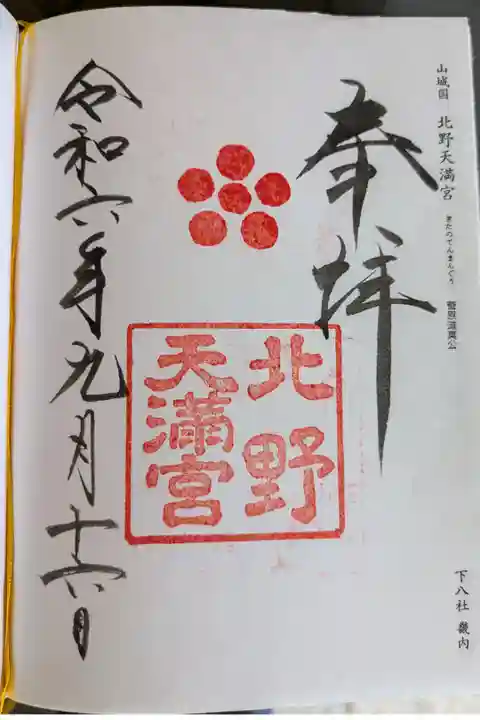 山城国 北野天満宮
きたのてんまんぐう
菅原道真公
下八社 畿内
奉拝
北野
天満宮
令和六年九月十六日